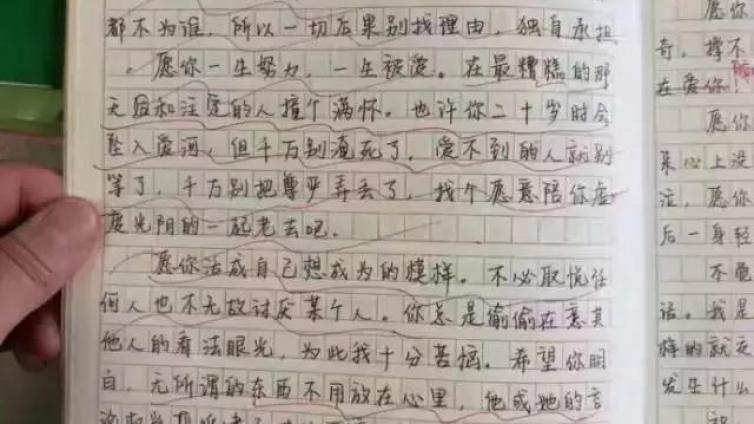 都不为谁，所以一切后果别找理由，独自承担
。愿你一生努力，一生被爱。在最糟糕的那
天后和注定的人撞个满怀。也许你二十岁时会
坠入爱河，但千万别淹死了，爱不到的人就别
等了，千万别把尊严弄丢了，找个愿意陪你虚
度光阴的一起老去吧。
愿你活成自己想成为的模样。不必取悦任
何人也不无故讨厌某个人。你总是偷偷在意其
他人的看法眼光，为此我十分苦恼。希望你明
白，无所谓的东西不用放在心里，他或她的言
愿你
奇，撑不
在爱你
愿你
某心上没
泣，愿你
后一身轻
不
话。我是
的就
发生什么